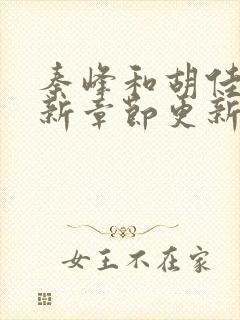 秦峰和胡佳
新章节更新
女王不在家